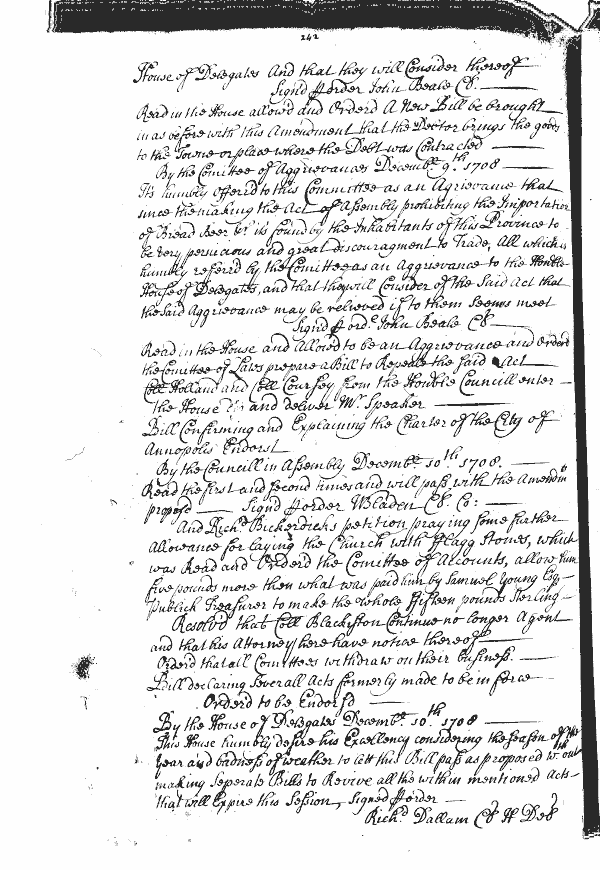 242
House of Delegates And that they will Consider thereof
Signd Porder John Beale Cl.
Read in the House allow'd and Orderd A New Bill be brought
in as before with this Amendment that the Debtor brings the goods
to the Towne or place where the Debt was Contracted
By the Comittee of Aggrievances Decembr. 9.th 1708
It's humbly offered to this Committee as an Agrievance that
since the making the Act of Assembly prohibiting the Importation
of Bread Beer &c. its found by the Inhabitants of this Province to
be very pernicious and great discouragment to Trade, All which is
humbly referrd by the Comittee as an Aggrievance to the Honble
House of Delegates, and that they will Consider of the Said Act that
the said Aggrievance may be relieved if to them seems meet
Signd P ordr John Beale Cl
Read in the House and Allow'd to be an Aggrievance and Orderd
the Comittee of Laws prepare a Bill to Repeale the said Act
Coll Holland and Coll Coursey from the Honble Councill enter
the House and deliver Mr. Speaker
Bill Confirming and Explaining the Charter of the City of
Annopolis Endorst
By the Councill in Assembly Decembr. 10th. 1708.
Read the first and second times and will pass with the Amendmt
proposd Signd Porder WBladen Cl. Co:
And Richd Bickerdicks petition praying some further
Allowance for laying the Church with fflagg Stones, which
was Read and Orderd the Comittee of Accounts, allow him
five pounds more then what was paid him by Samuel Young Esqr
Publick Treasurer to make the whole ffifteen pounds sterling
Resolv'd that Coll Blackiston Continue no longer Agent
and that his Attorney here have notice thereof
Orderd that all Comittees withdraw on their business.
Bill declaring Severall Acts formerly made to be in force
Orderd to be Endorsd
By the House of Delegates Decembr. 10.th 1708
This House humbly desire his Excellency considering the season of the
year and badness of weather to lett this Bill pass as proposed wth.out
making Seperate Bills to Revive all the within mentioned Acts
that will Expire this Session, Signed Porder
Richd. Dallam Cl H Del